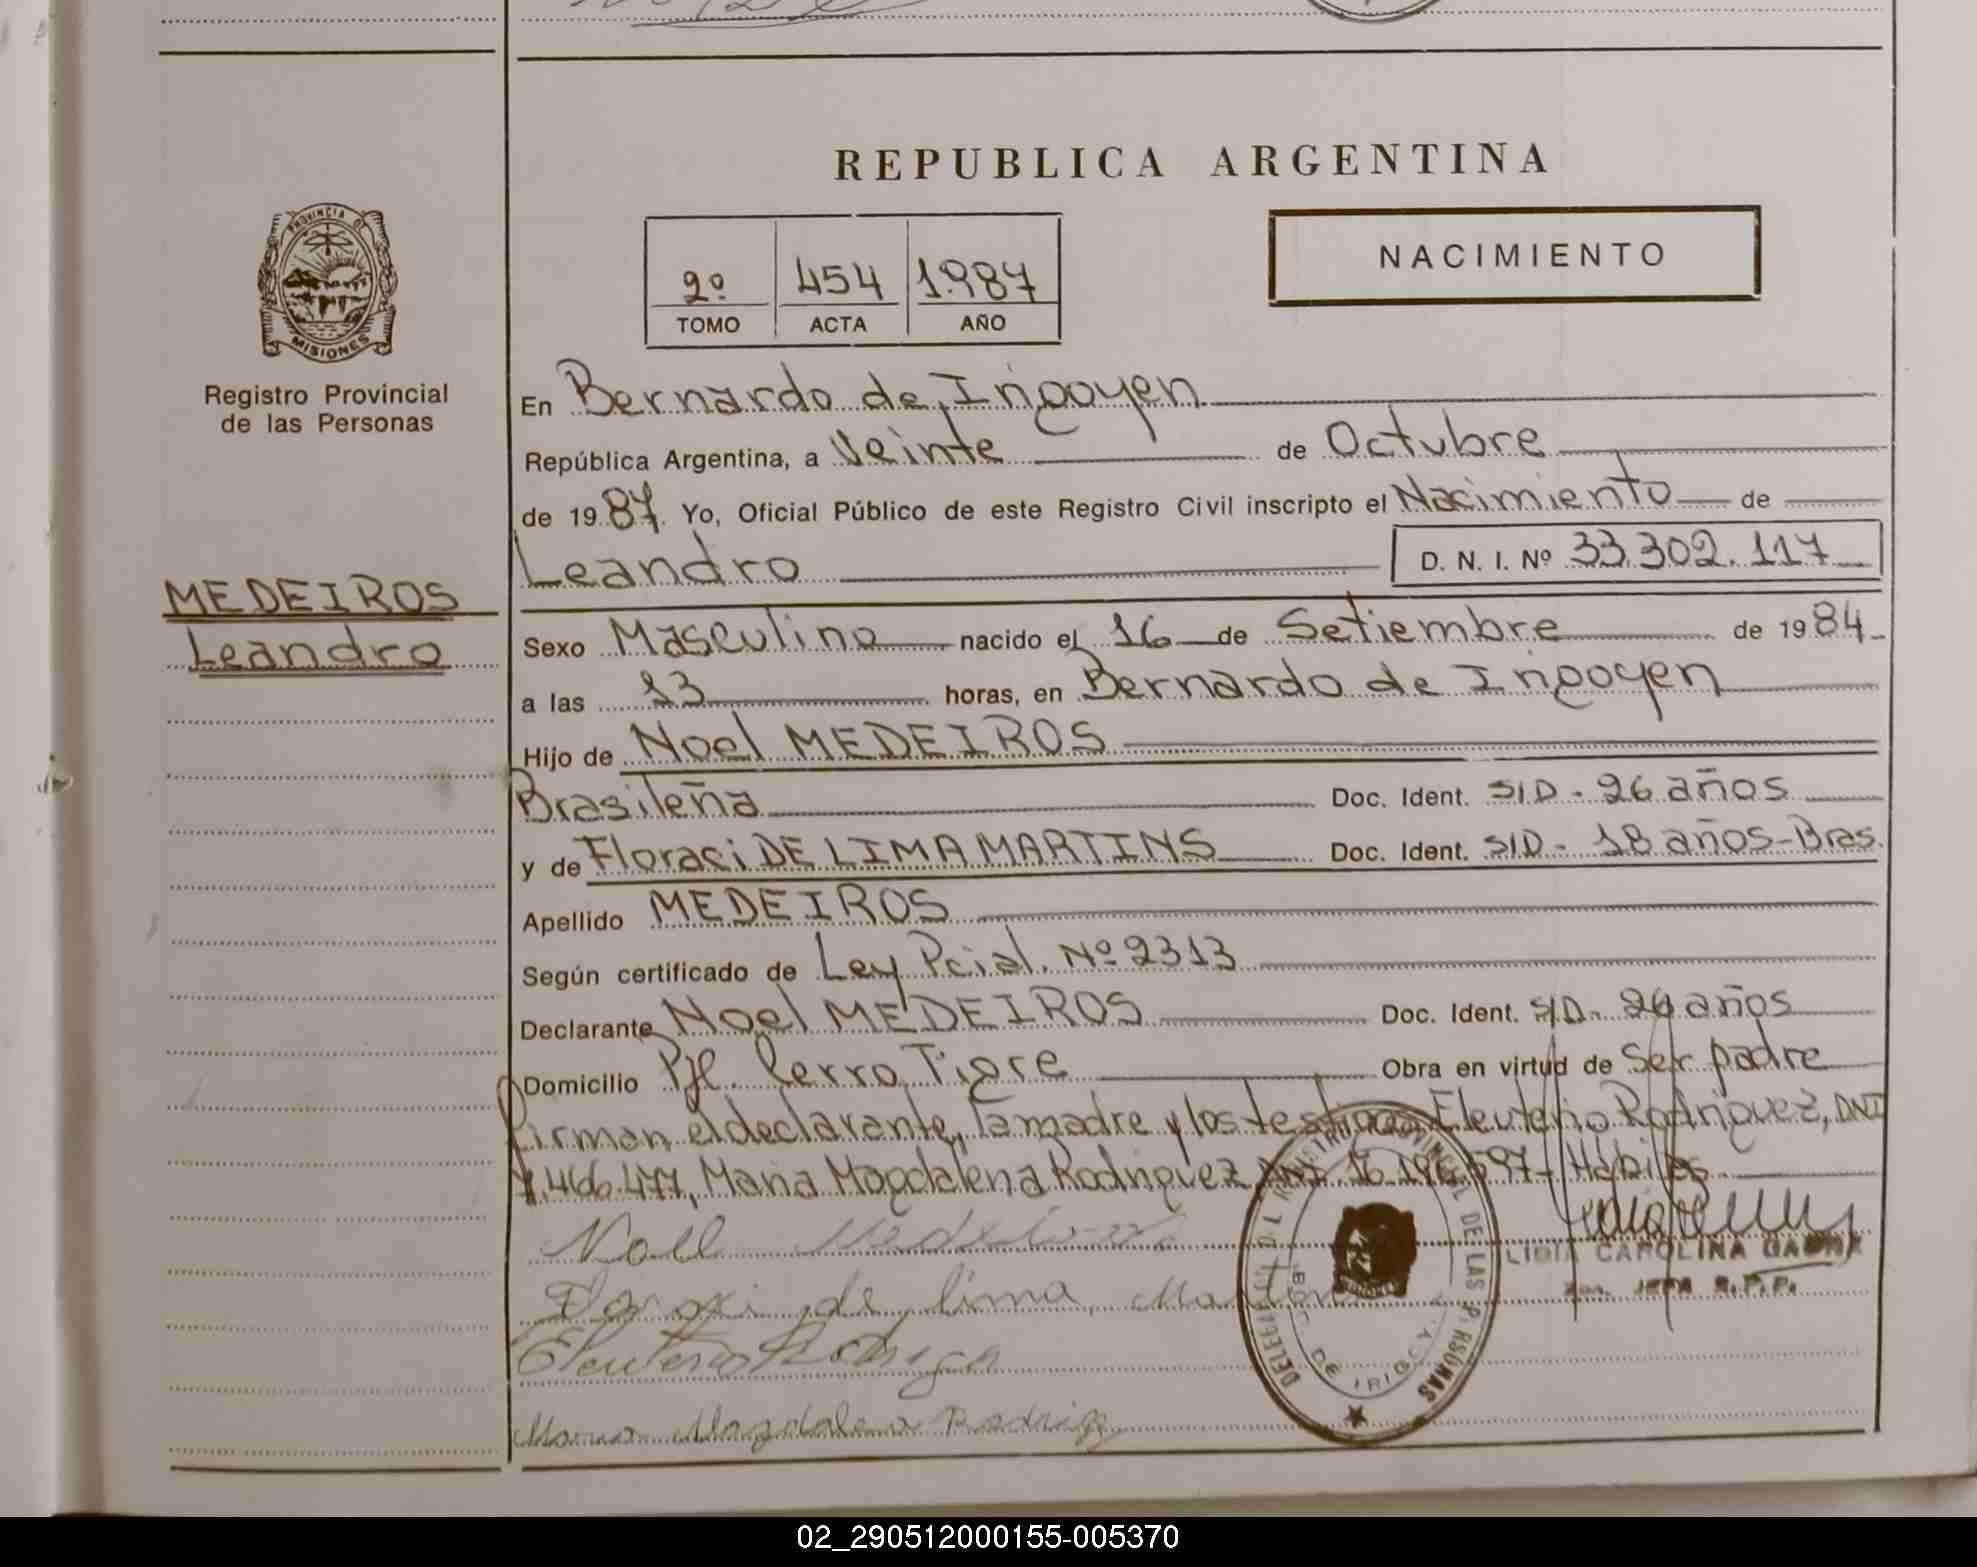 REPUBLICA ARGENTINA
PROVINCIA DE
MISIONES
Registro Provincial
de las Personas
2º 454 1987
TOMO ACTA AÑO
NACIMIENTO
En Bernardo de Irigoyen
República Argentina, a Veinte de Octubre
de 1987. Yo, Oficial Público de este Registro Civil inscripto el Nacimiento de
Leandro D. N. I. Nº 33.302.117
MEDEIROS
Leandro
Sexo Masculino nacido el 16 de Setiembre de 1984
a las 13 horas, en Bernardo de Irigoyen
Hijo de Noel MEDEIROS
Brasileña Doc. Ident. S/D - 26 años
y de Floraci DE LIMA MARTINS Doc. Ident. S/D - 18 años - Bras.
Apellido MEDEIROS
Según certificado de Ley Pcial. Nº 2313
Declarante Noel MEDEIROS Doc. Ident. S/D - 26 años
Domicilio Pje. Cerro Tigre Obra en virtud de Ser padre
Firman el declarante, la madre y los testigos Eleuterio Rodriguez, DNI
.466.477, Maria Magdalena Rodriguez DNI 16.196.597 - Hábiles
Noel Medeiros
de lima Martins
Eleuterio
Maria Magdalena Rodrig
LIDIA CAROLINA
JEFA R.P.P.
DELEGACION DEL REGISTRO PROVINCIAL DE LAS PERSONAS
BDO. DE IRIGOYEN
02_290512000155-005370